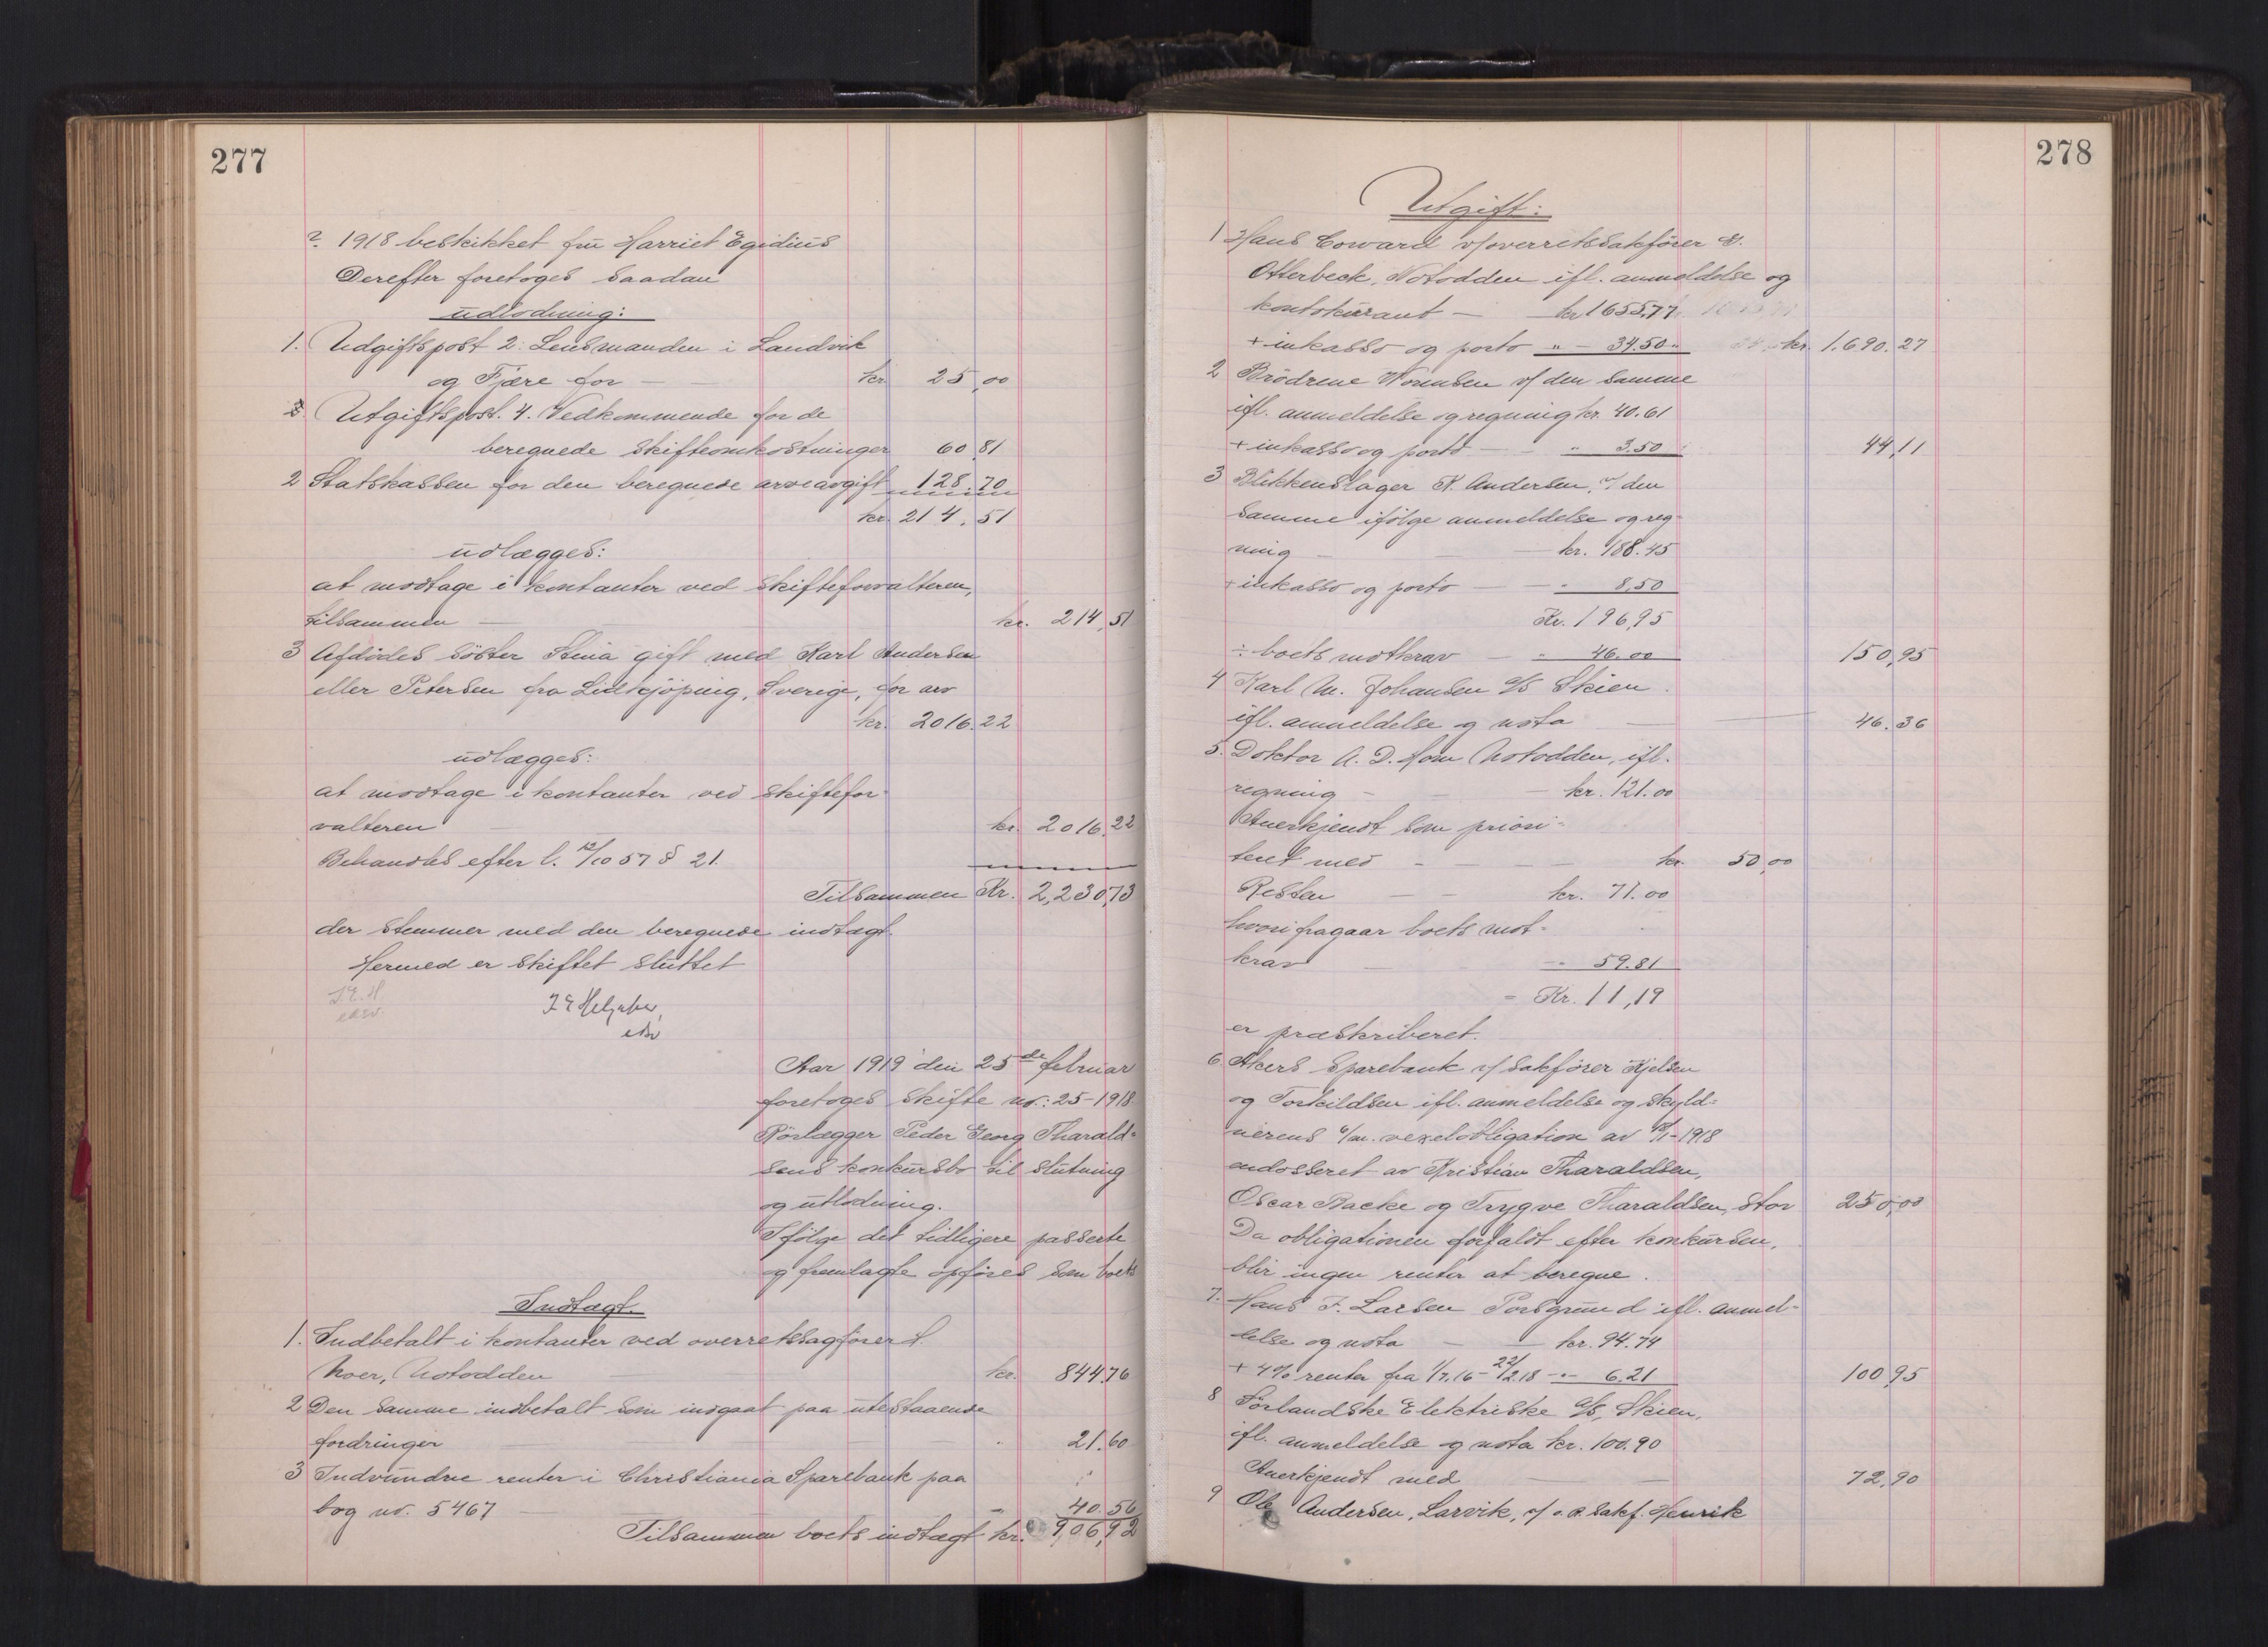 277
2. 1918 beskikket fru Harriet Egidius
Derefter foretoges saadan
udlodning:
1. Udgiftspost 2: Lensmanden i Landvik
og Fjære for — kr. 25,00
3 Utgiftspost. 4. Vedkommende for de
beregnede skifteomkostninger 60,81
2 Statskassen for den beregnede arveavgift 128.70
kr. 214,51
udlægges:
at modtage i kontanter ved skifteforvalteren,
tilsammen — kr. 214,51
3 Afdødes søster Stina gift med Karl Andersen
eller Petersen fra Lidkjöping, Sverige, for arv
kr. 2016.22
udlægges:
at modtage i kontanter ved skiftefor=
valteren kr. 2016.22
Behandles efter l. 12/10 57 § 21.
Tilsammen Kr. 2,230,73
der stemmer med den beregnede indtægt.
Hermed er skiftet sluttet
J. E. H.
edsv.
Aar 1919 den 25de februar
foretoges skifte nr.: 25-1918
Rørlægger Peder Georg Tharald=
sens konkursbo til slutning
og utlodning.
Ifølge det tidligere passerte
og fremlagte opføres som boets
Indtægt.
1. Indbetalt i kontanter ved overretssagfører
Moer, Notodden kr. 844.76
2 Den samme indbetalt som indgaat paa utestaaende
fordringer 21.60
3 Indvundne renter i Christiania Sparebank paa
bog nr. 5467 — 40.56
Tilsammen boets indtægt kr. 906,92
278
Utgift:
1 Hans Coward v/overretssakfører
Otterbeck, Notodden ifl. anmeldelse og
kontokurant — kr 1655.77
+ inkasso og porto " — 34.50 " kr. 1.690.27
2 Brødrene Norensen v/ den samme
ifl. anmeldelse og regning kr. 40.61
+ inkasso og porto — " 3.50 44,11
3 Blikkenslager K. Andersen, v/ den
samme ifølge anmeldelse og reg=
ning — kr. 188.45
+ inkasso og porto — " 8,50
Kr. 196,95
÷ boets motkrav — " 46.00 150,95
4 Karl M. Johansen a/s Skien.
ifl. anmeldelse og nota 46.36
5. Doktor A. D. Hom Notodden, ifl.
regning — kr. 121.00
Anerkjendt som priori=
teret med — kr. 50,00
Resten — kr. 71.00
hvori fragaar boets mot=
krav — 59.81
= Kr. 11,19
er præskriberet.
6. Akers Sparebank v/ sakfører Kjelsen
og Torkildsen ifl. anmeldelse og skyld=
nerens 6/m. vexelobligation av 18/1-1918
endosseret av Kristian Tharaldsen,
Oscar Backe og Trygve Tharaldsen, stor 250,00
Da obligationen forfaldt efter konkursen,
blir ingen renter at beregne.
7. Hans F. Larsen Porsgrund ifl. anmel=
delse og nota — kr. 94.74
+ 4% renter fra 1/7.16 — 22/2.18 — " 6.21 100,95
8 Sørlandske Elektriske a/s, Skien,
ifl. anmeldelse og nota kr. 100.90
Anerkjendt med — 72,90
9 Ole Andersen, Larvik, v/ o.r. sakf. Henrik